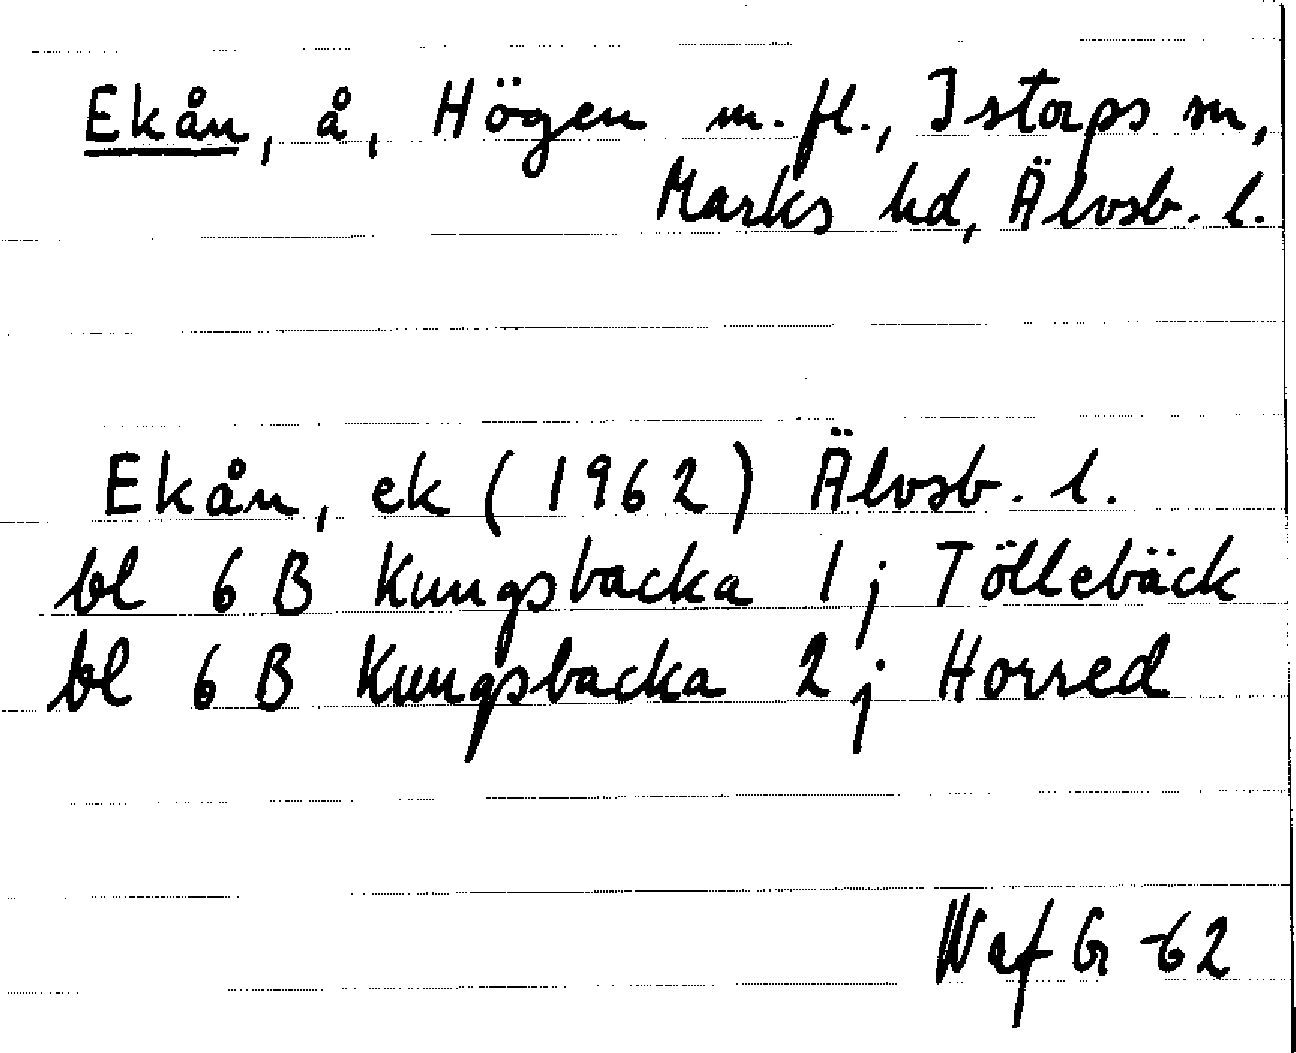 Ekån, å, Högen m.fl., Istorps sn,
Marks hd, Älvsb. l.
Ekån, ek (1962) Älvsb. l.
bl 6 B Kungsbacka 1 j Töllebäck
bl 6 B Kungsbacka 2 j Horred
W af G -62